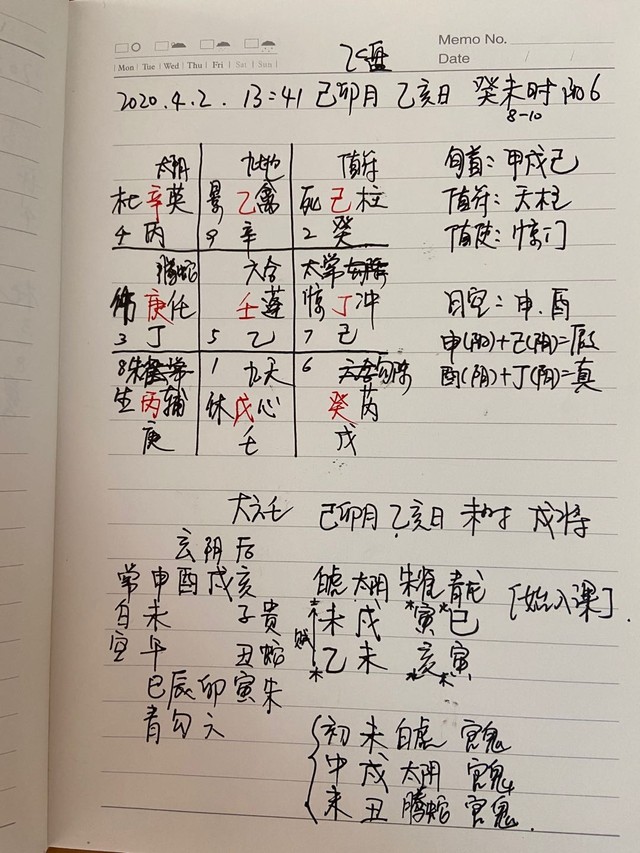 乙盘
Memo No.
Mon Tue Wed Thu Fri Sat Sun
Date / /
2020.4.2. 13:41 己卯月 乙亥日 癸未时 阳6
8-10
太阴 九地 值符 旬首：甲戌己
杜辛英 景乙禽 死己柱 值符：天柱
4 丙 9 辛 2 癸 值使：惊门
腾蛇 六合 太常
伤庚任 壬蓬 惊丁冲 日空：申.酉
3 丁 5 乙 7 己 申(阳)+己(阴)=假
8 朱 1 九天 6 勾陈 酉(阴)+丁(阴)=真
生丙辅 休戊心 癸芮
庚 壬 戊
大六壬 己卯月 乙亥日 未时 戌将
玄 阴 后
常 申 酉 戌 亥 白虎 太阴 朱雀 青龙 [始入课].
白 未 子 贵 贼 未 戌 寅 巳
空 午 丑 蛇 乙 未 亥 寅
巳 辰 卯 寅 朱
青 勾 六
初 未 白虎 官鬼
中 戌 太阴 官鬼
末 丑 腾蛇 官鬼.